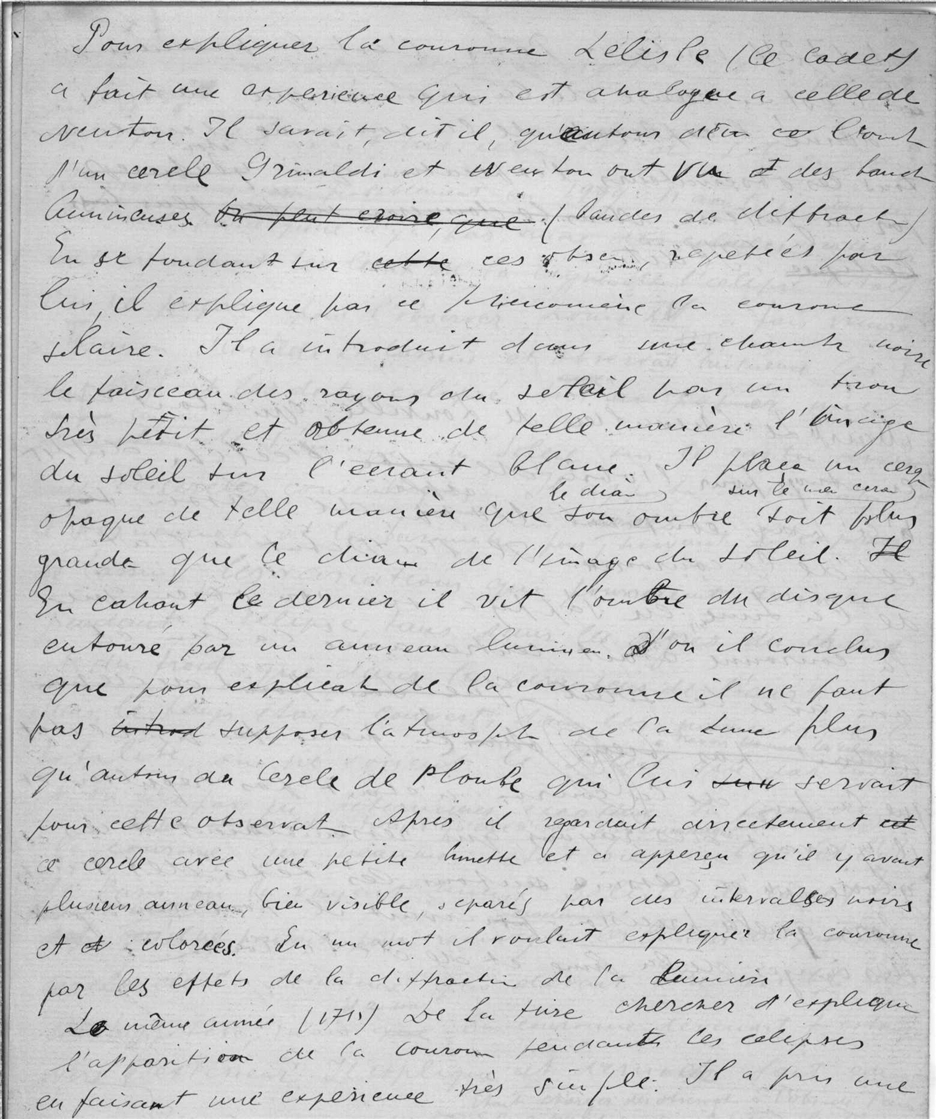 Pour expliquer la couronne Delisle (le cadet)
a fait une experience qui est analogue a celle de
Newton. Il savait, dit il, qu'autour d'un
d'un cercle Grimaldi et Newton ont vu des band
lumineuses on peut croire que (bandes de diffract)
En se fondant sur cette ces obser, repetées par
lui, il explique par ce phénomène la couronne
solaire. Il a introduit dans une chamb noire
le faisceau des rayons du soleil par un trou
très petit et obtenue de telle manière l'image
du soleil sur l'ecrant blanc. Il place un cerq
le diam sur le me ecran
opaque de telle manière que son ombre soit plus
grande que le diam de l'image du soleil. Il
En cahant le dernier il vit l'ombre du disque
entouré par un anneau lumineu. d'ou il conclus
que pour explicat de la couronne il ne faut
pas introd supposer l'atmosph de la Lune plus
qu'autour du cercle de plombe qui lui servait
pour cette observat Après il regardait directement et
ce cercle avec une petite lunette et a apperçu qu'il y avait
plusieurs anneau, bien visible, separés par des intervalles noirs
et colorées. En un mot il voulait expliquer la couronne
par les effets de la diffraction de la lumière
La même année (1715) De la Hire chercher d'explique
l'apparition de la couron pendant les eclipses
en faisant une experience très simple. Il a pris une